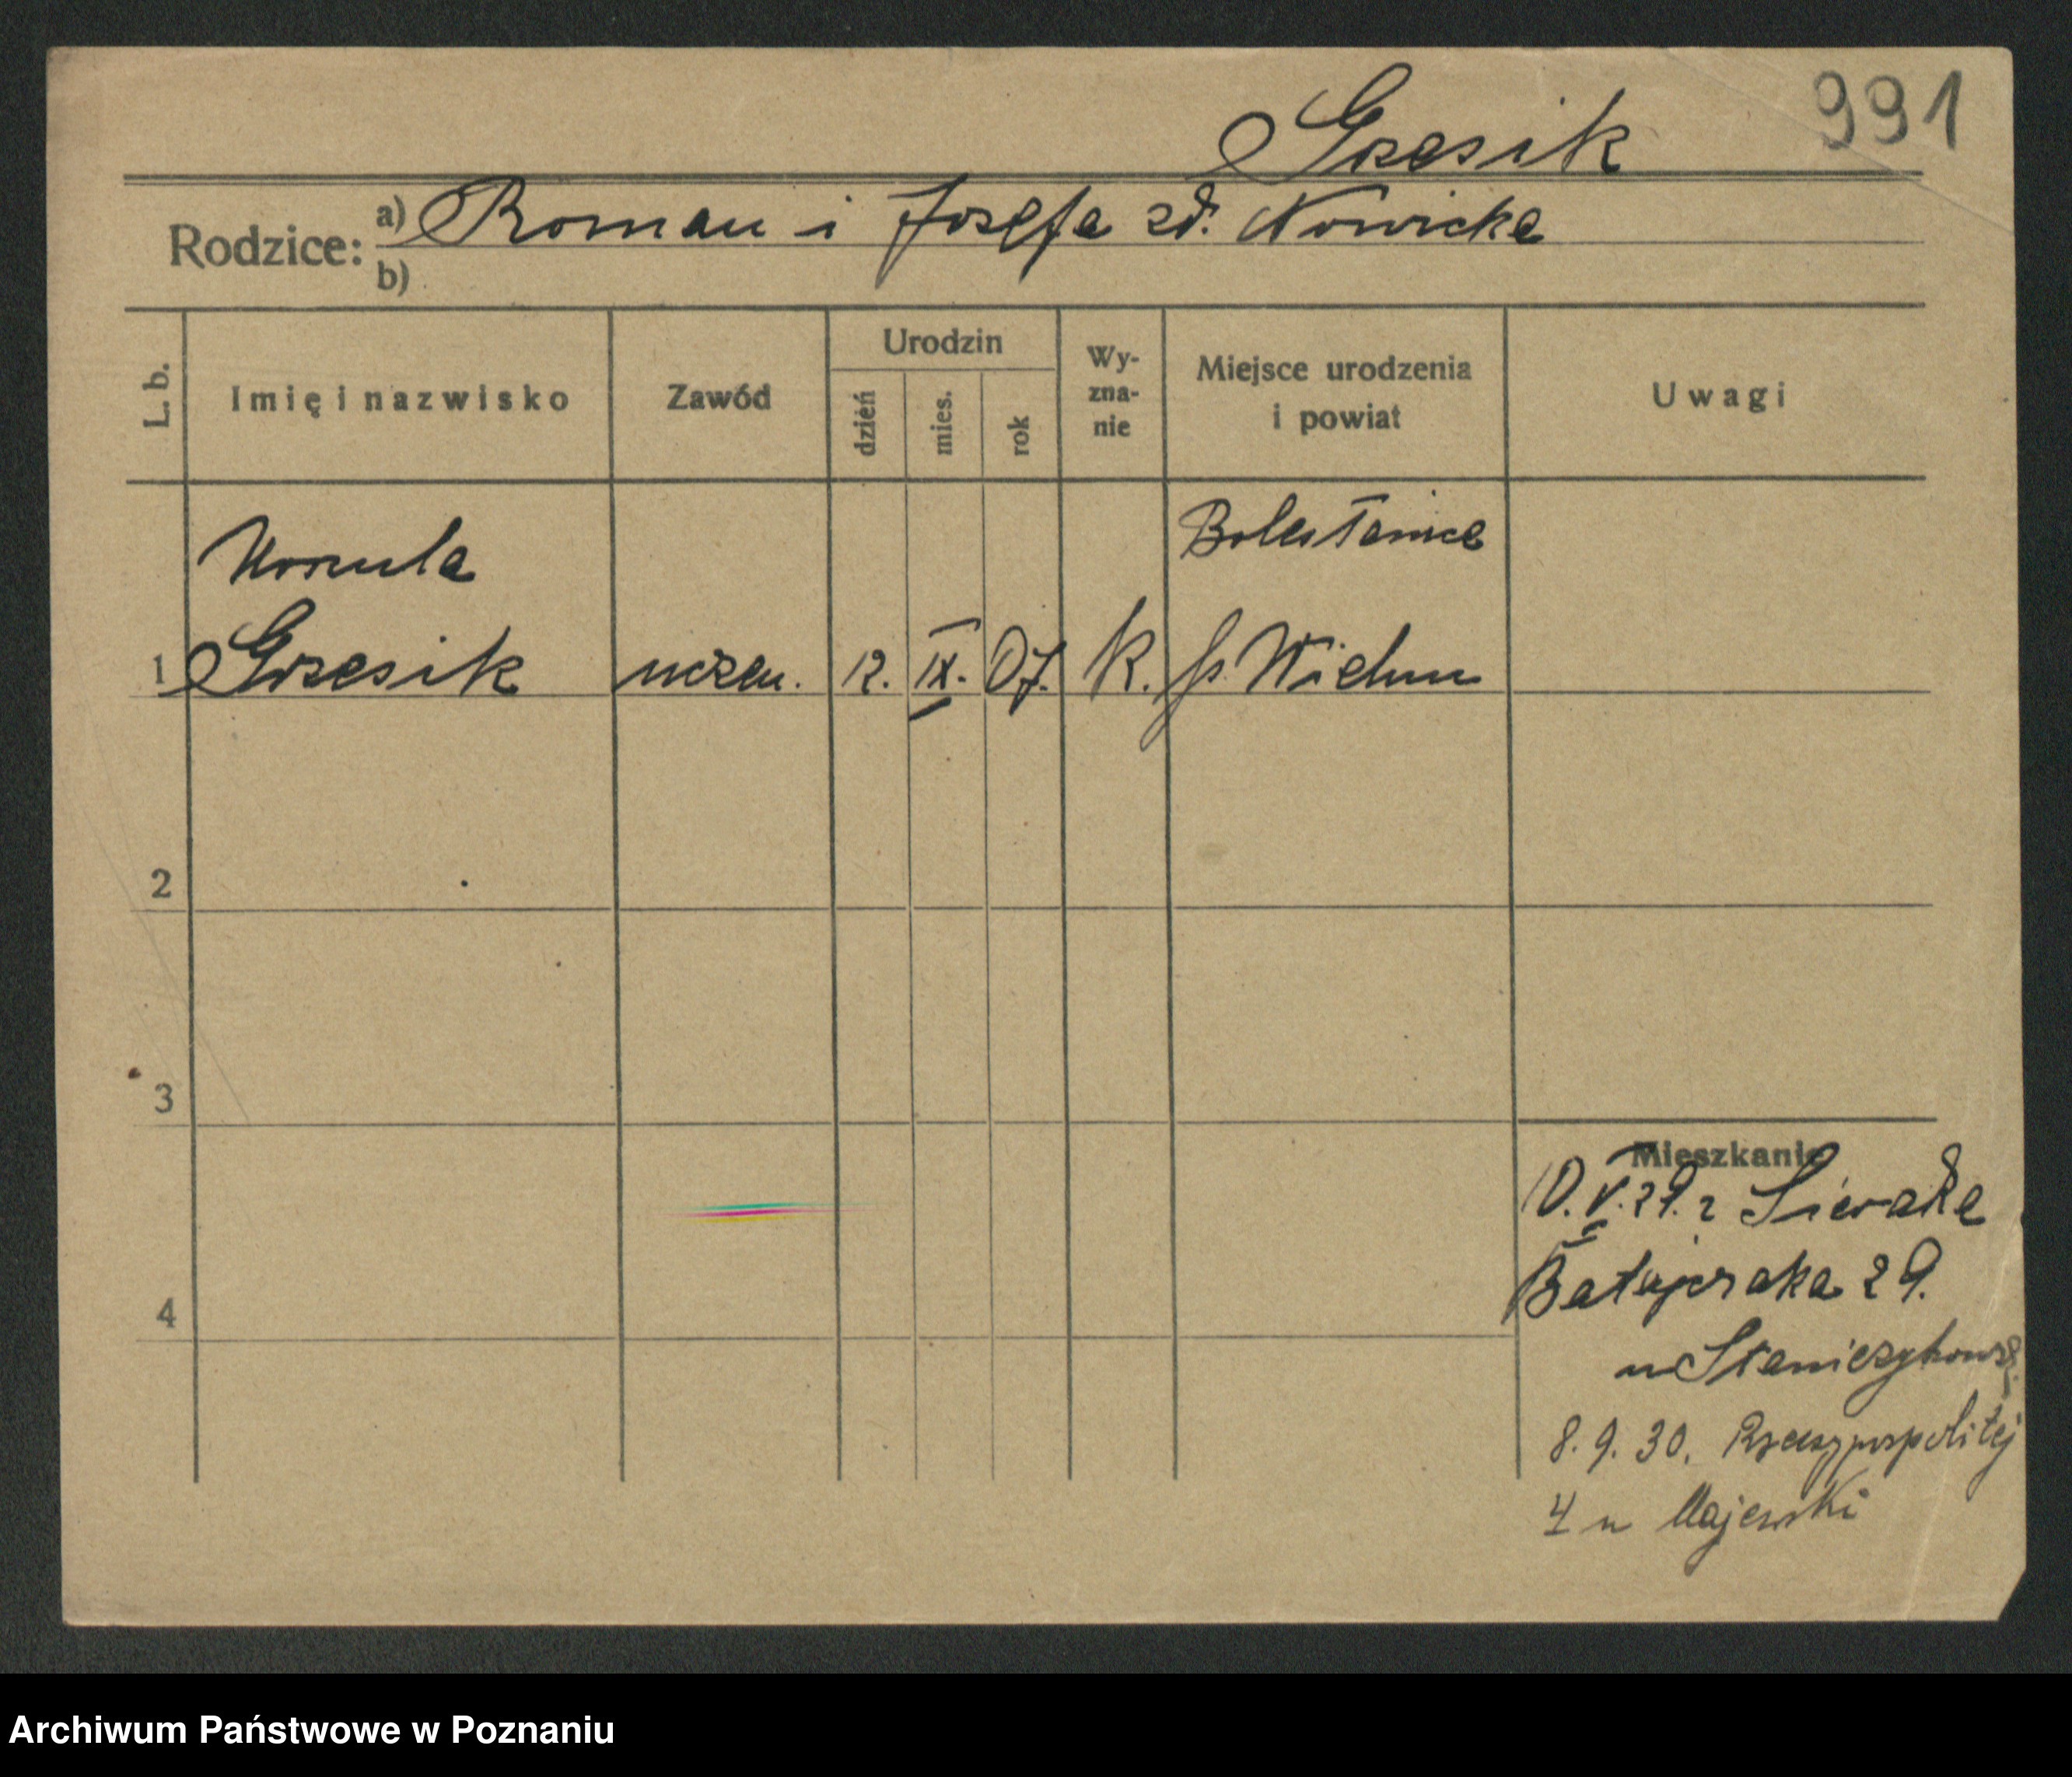 991
Grzesik
Rodzice: a) Roman i Józefa zd. Nowicka
b)
L. b.
Imię i nazwisko
Zawód
Urodzin
dzień
mies.
rok
Wy-
zna-
nie
Miejsce urodzenia
i powiat
Uwagi
Urszula
Bolesławiec
1 Grzesik uczen. 12. IX. 07. K. p. Wieluń
2
3
Mieszkanie
10. V. 29. z Sieradza
4
Batujczaka 29.
u
8. 9. 30. Rzeczypospolitej
4 u Majewski
Archiwum Państwowe w Poznaniu